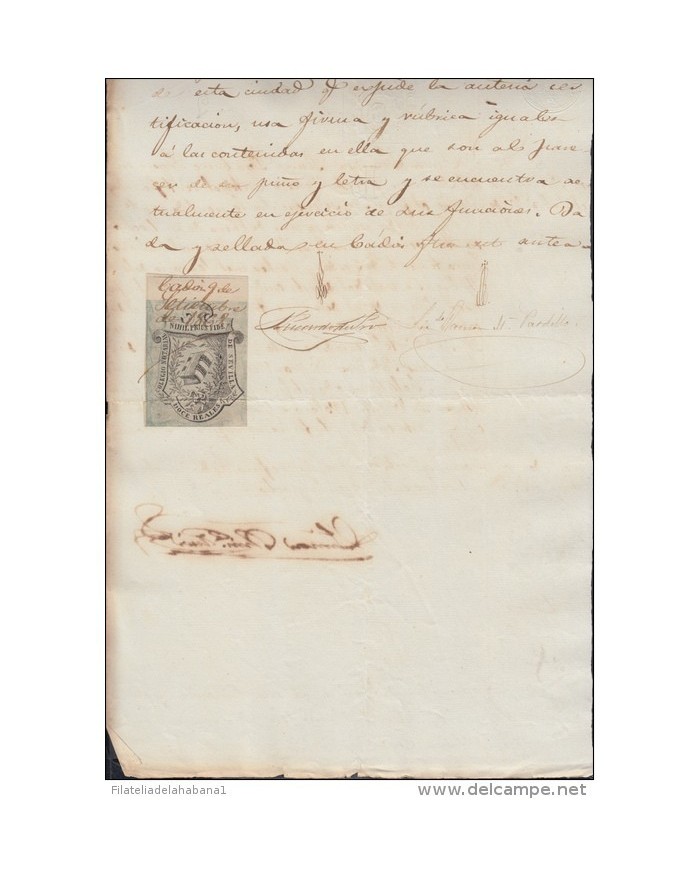 de esta ciudad q̃ expide la anterior cer
tificacion, usa firma y rúbrica iguales
á las contenidas en ella que son al pare
cer de su puño y letra y se encuentra ac
tualmente en ejercicio de sus funciones. Da
da y sellada en Cádiz fecha ut antea
Cadiz 9 de
Setiembre
de
NIHIL PRIUS FIDE
COLEGIO NOTARIAL DE SEVILLA
DOCE REALES
Pardillo
Filateliadelahabana1
www.delcampe.net